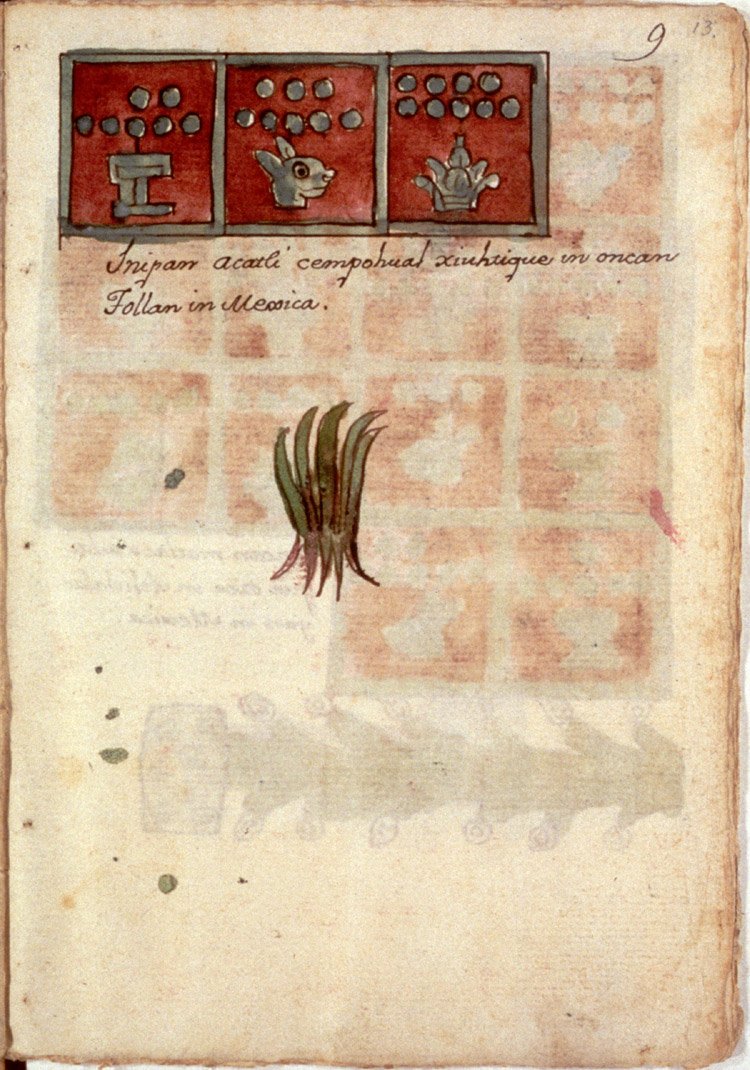 9 13.
Inipan acatli cempohual xiuhtique in oncan
Tollan in Mexica.